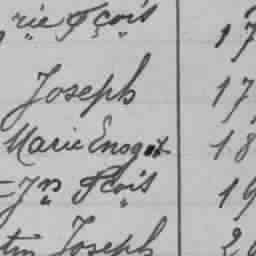 rie Fçois 17
Joseph 17
Marie Enogat 18
Jn Fçois 19
tin Joseph 20